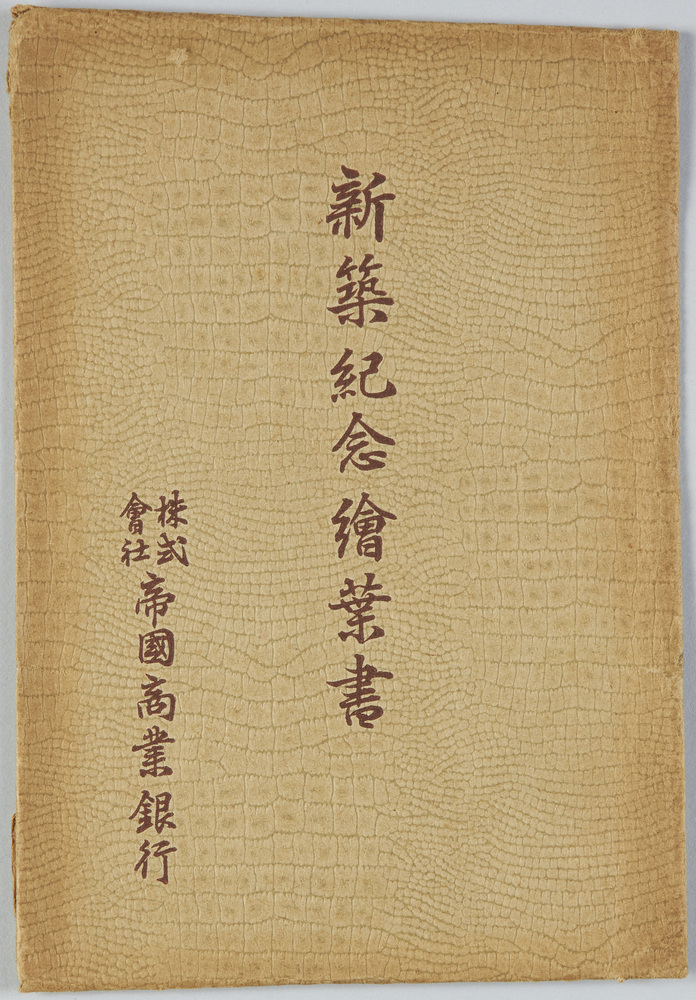 新築紀念繪葉書
株式會社帝國商業銀行